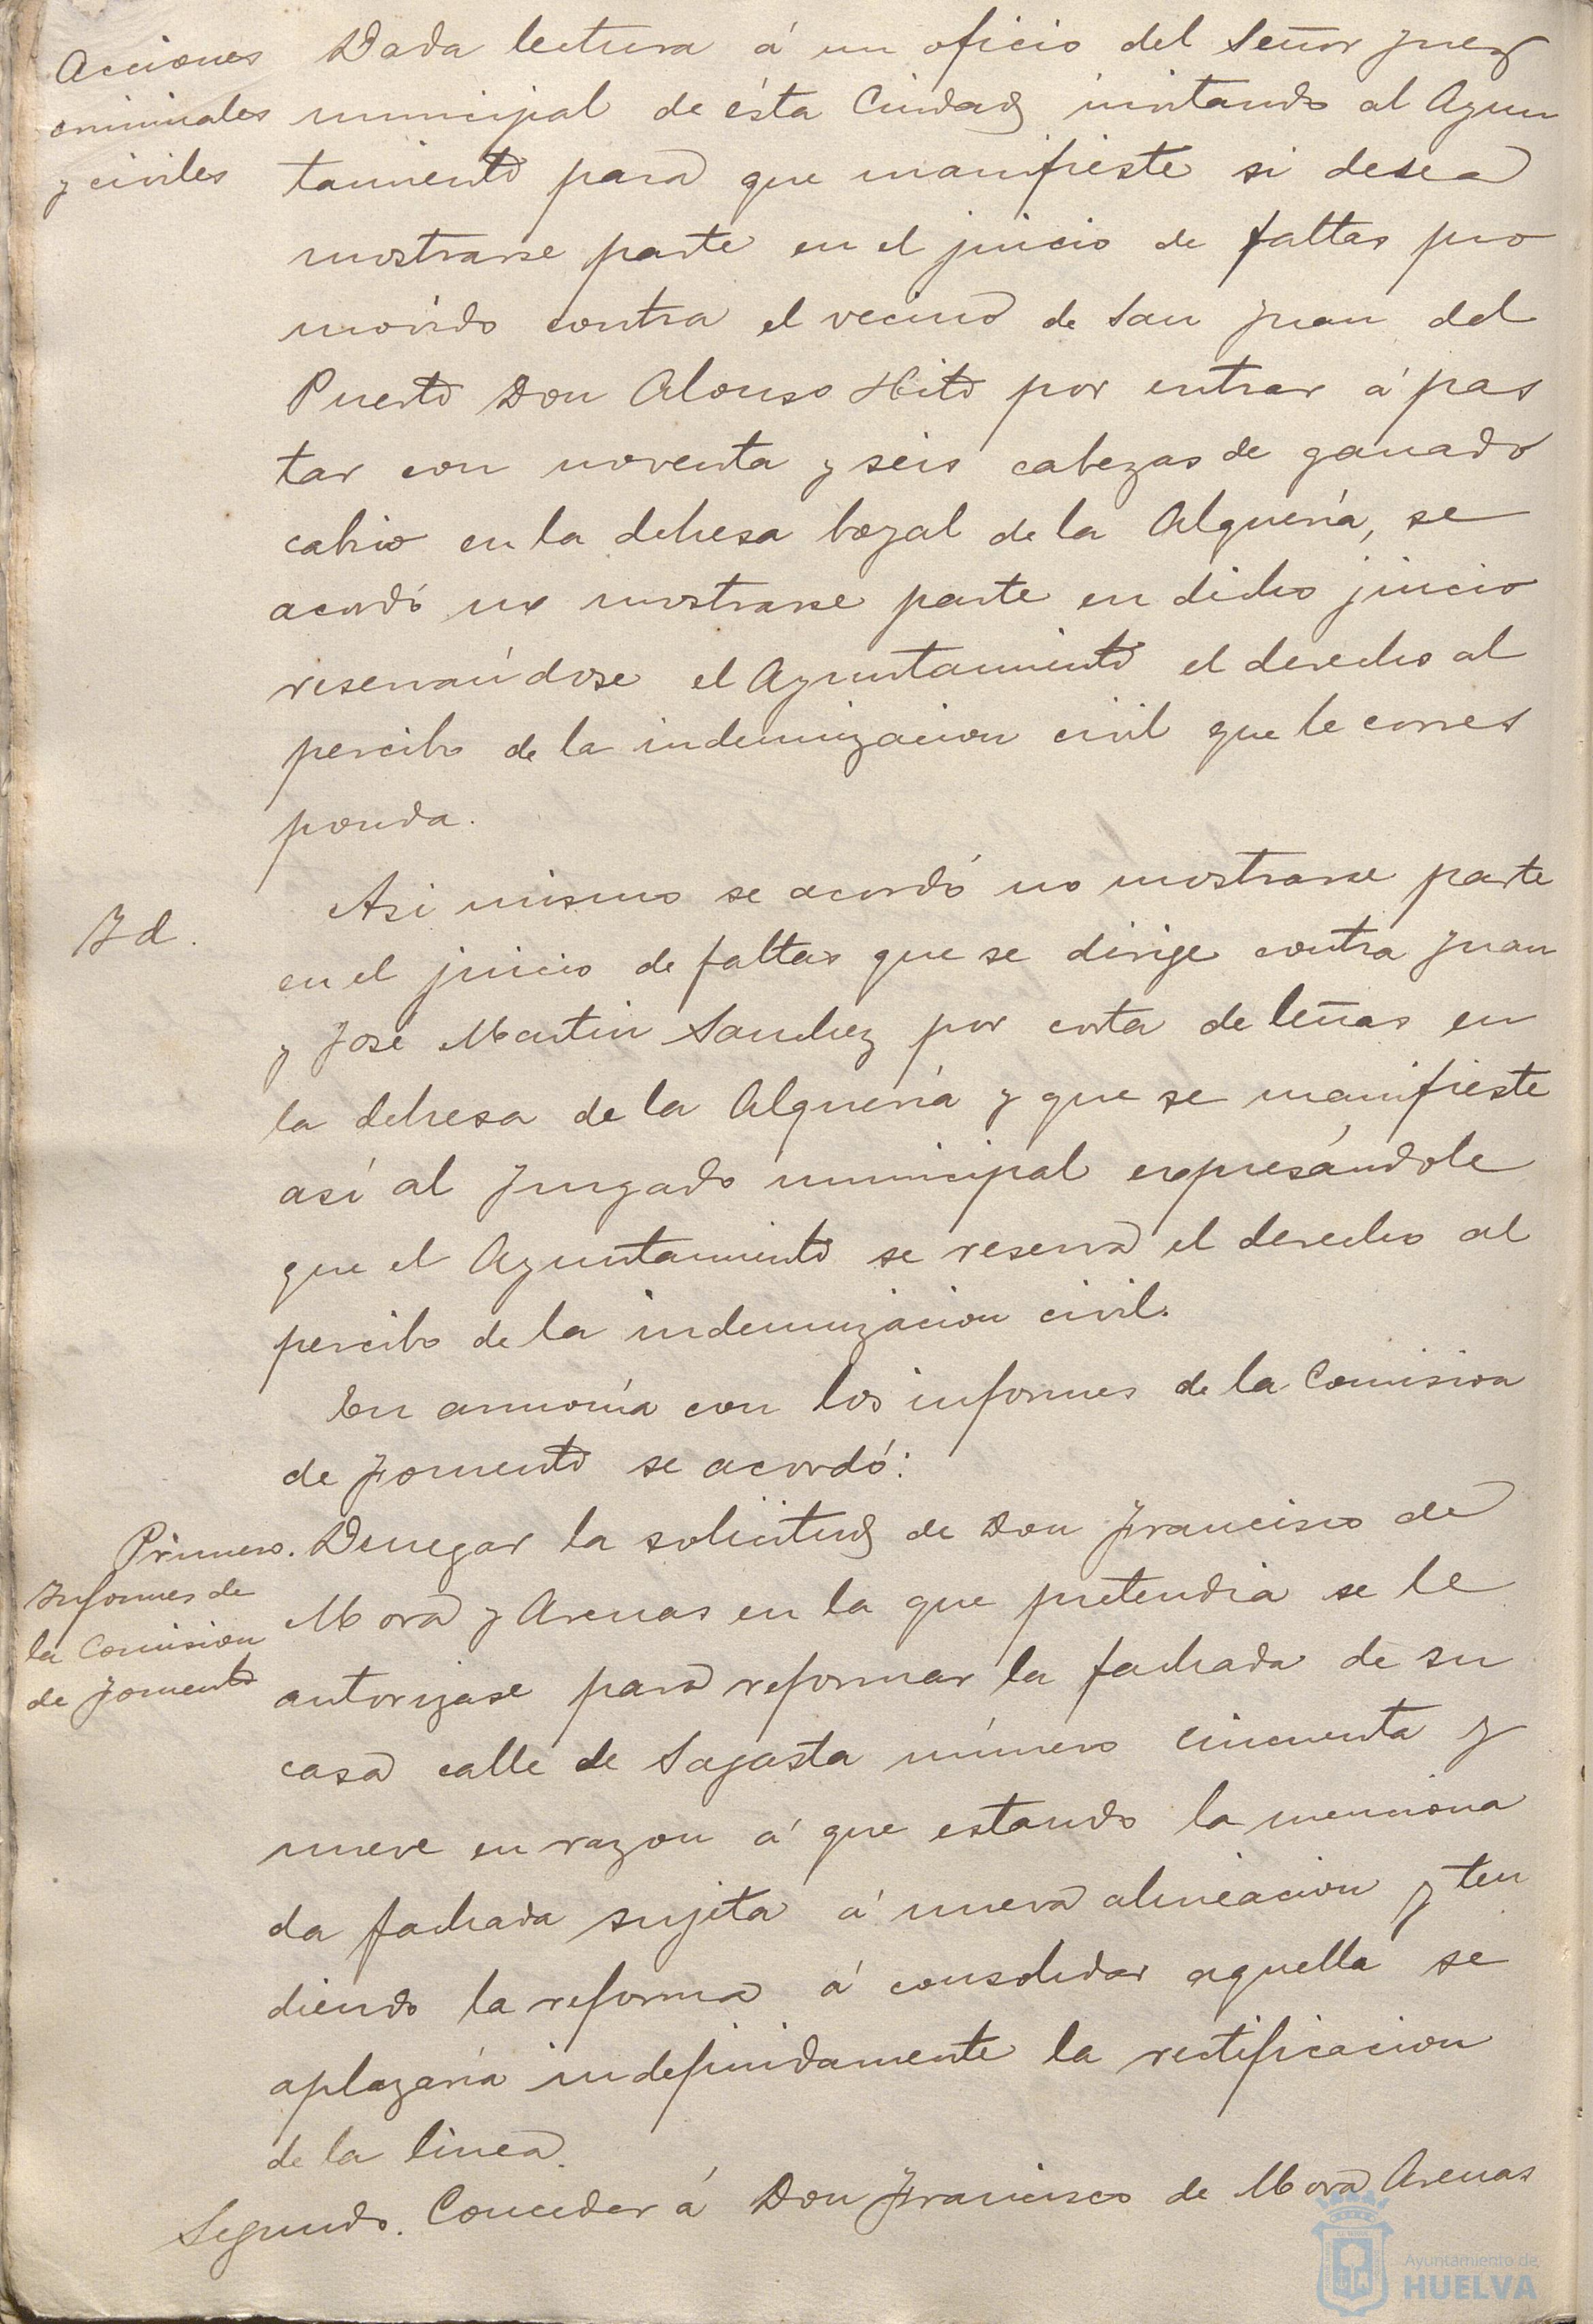 Acciones
criminales
y civiles
Dada lectura á un oficio del Señor Juez
municipal de ésta Ciudad invitando al Ayun
tamiento para que manifieste si desea
mostrarse parte en el juicio de faltas pro
movido contra el vecino de San Juan del
Puerto Don Alonso Hito por entrar á pas
tar con noventa y seis cabezas de ganado
cabrio en la dehesa boyal de la Alquería, se
acordó no mostrarse parte en dicho juicio
reservándose el Ayuntamiento el derecho al
percibo de la indemnizacion civil que le corres
ponda.
Id.
Asi mismo se acordó no mostrarse parte
en el juicio de faltas que se dirige contra Juan
y José Martin Sanchez por corta de leñas en
la dehesa de la Alquería y que se manifieste
así al Juzgado municipal expresándole
que el Ayuntamiento se reserva el derecho al
percibo de la indemnizacion civil.
En armonía con los informes de la Comision
de Fomento se acordó:
Informes de
la Comision
de Fomento
Primero. Denegar la solicitud de Don Francisco de
Mora y Arenas en la que pretendia se le
autorizase para reformar la fachada de su
casa calle de Sagasta número cincuenta y
nueve en razon á que estando la menciona
da fachada sujeta á nueva alineacion y ten
diendo la reforma á consolidar aquella se
aplazaría indefinidamente la rectificacion
de la linea.
Segundo. Conceder á Don Francisco de Mora Arenas
Ayuntamiento de
HUELVA